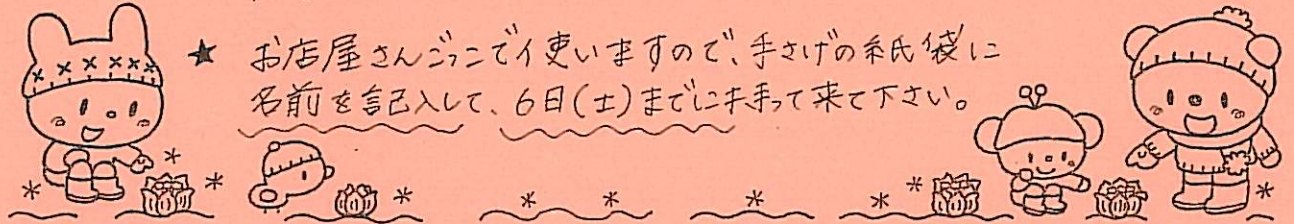 ★ お店屋さんごっこで使いますので、手さげの紙袋に
名前を記入して、6日(土)までに持って来て下さい。